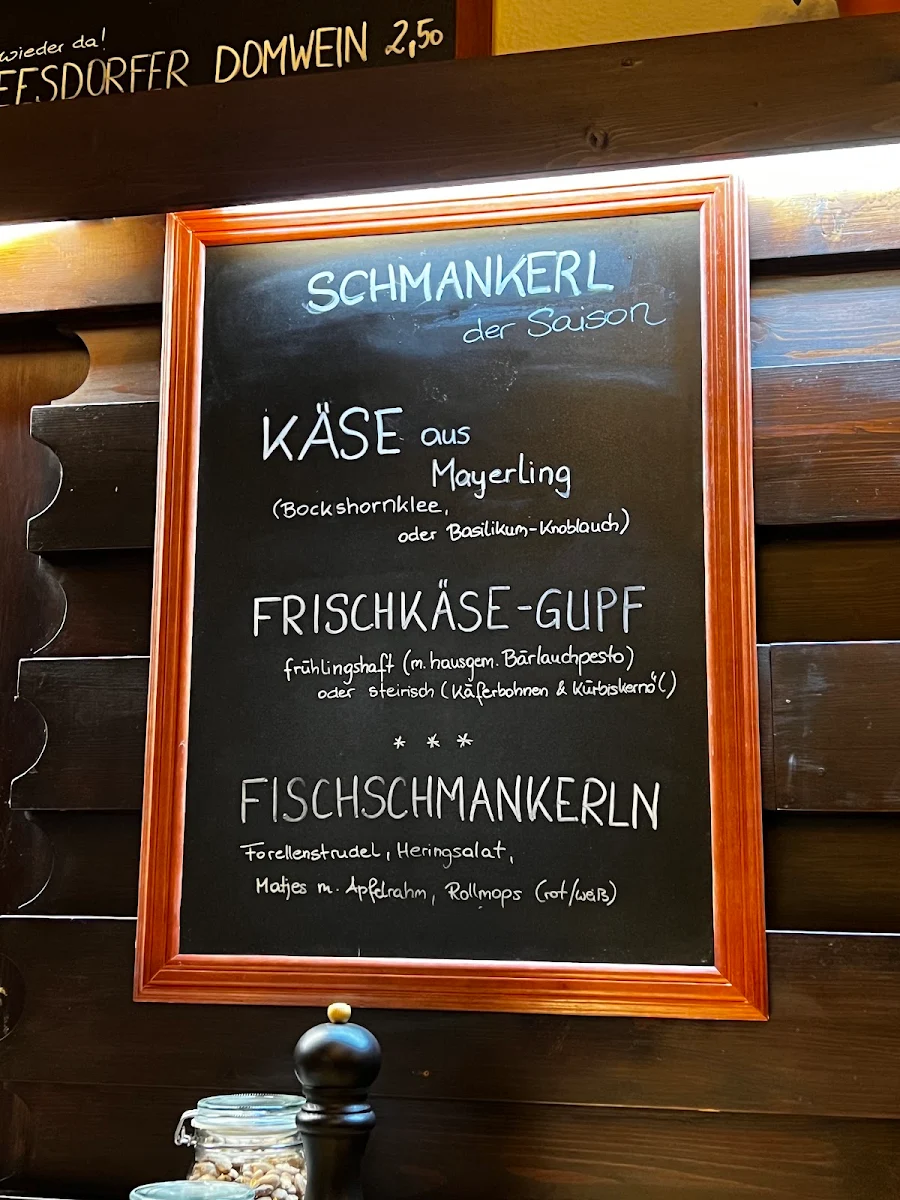 wieder da!
DOMWEIN 2,50
SCHMANKERL
der Saison
KÄSE aus
Mayerling
(Bockshornklee,
oder Basilikum-Knoblauch)
FRISCHKÄSE-GUPF
frühlingshaft (m. hausgem. Bärlauchpesto)
oder steirisch (Käferbohnen & Kürbiskernöl)
* * *
FISCHSCHMANKERLN
Forellenstrudel, Heringsalat,
Matjes m. Apfelrahm, Rollmops (rot/weiß)